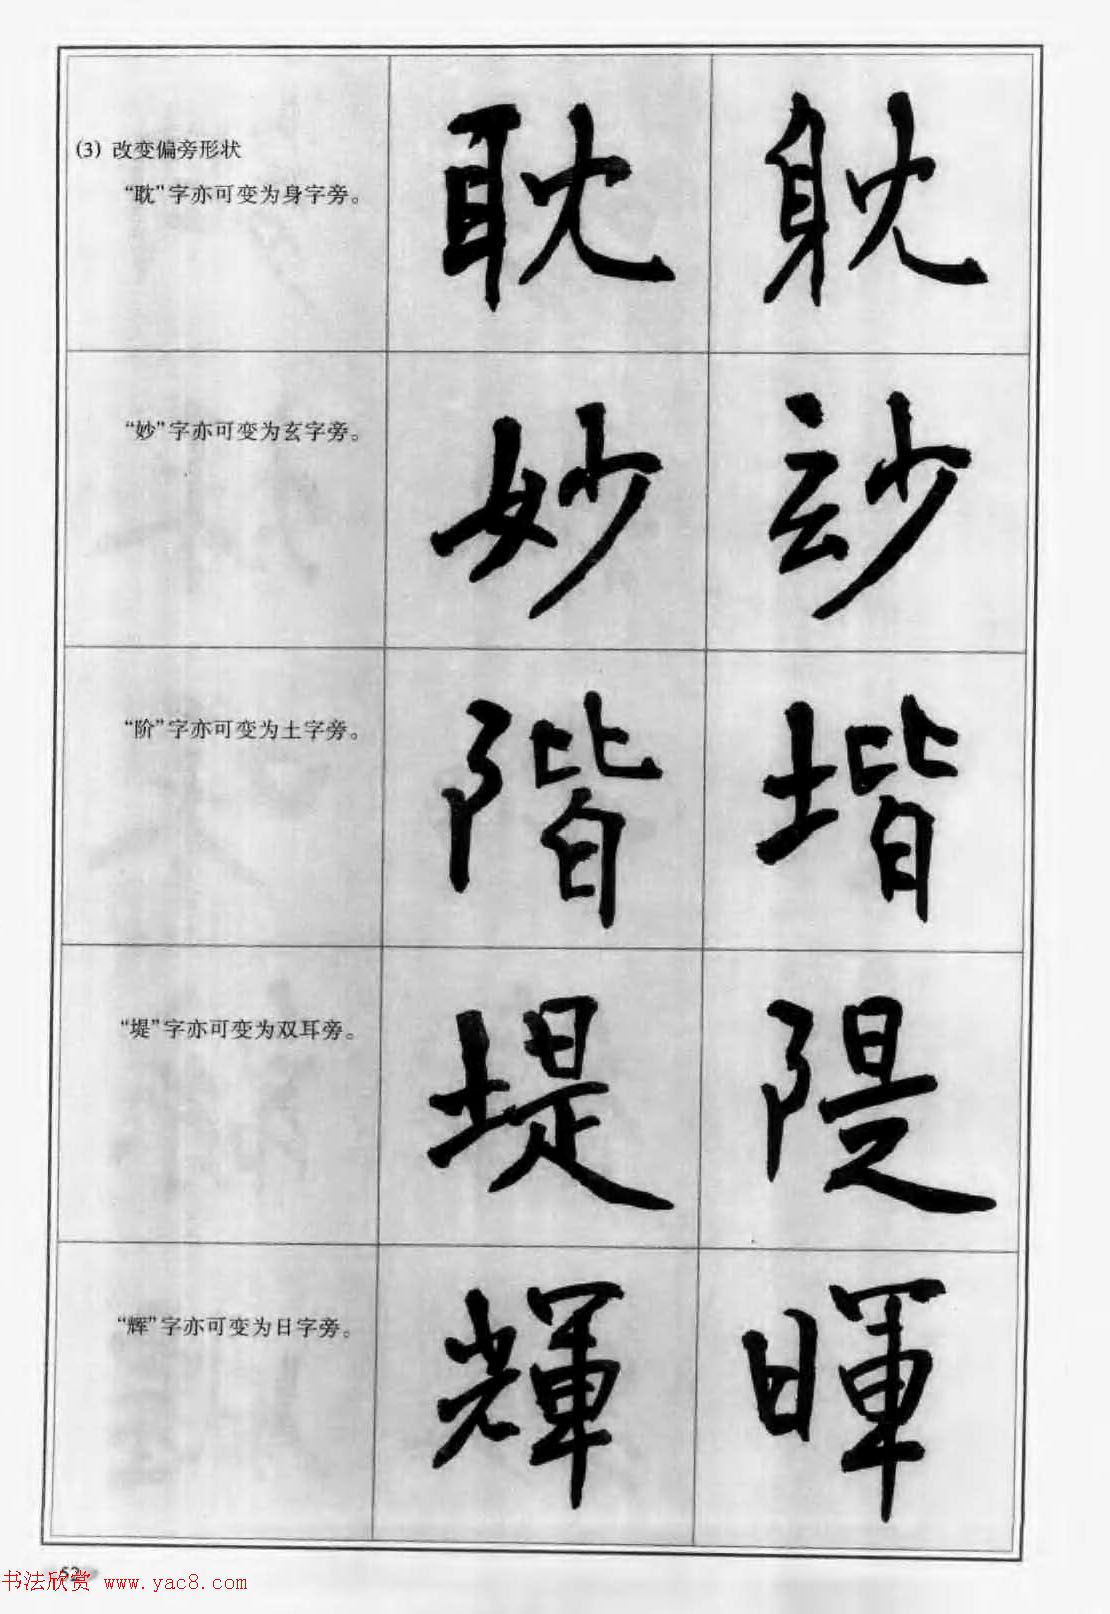 (3) 改变偏旁形状
“耽”字亦可变为身字旁。
耽 躭
“妙”字亦可变为玄字旁。
妙 玅
“阶”字亦可变为土字旁。
階 堦
“堤”字亦可变为双耳旁。
堤 隄
“辉”字亦可变为日字旁。
輝 暉
52
书法欣赏 www.yac8.com